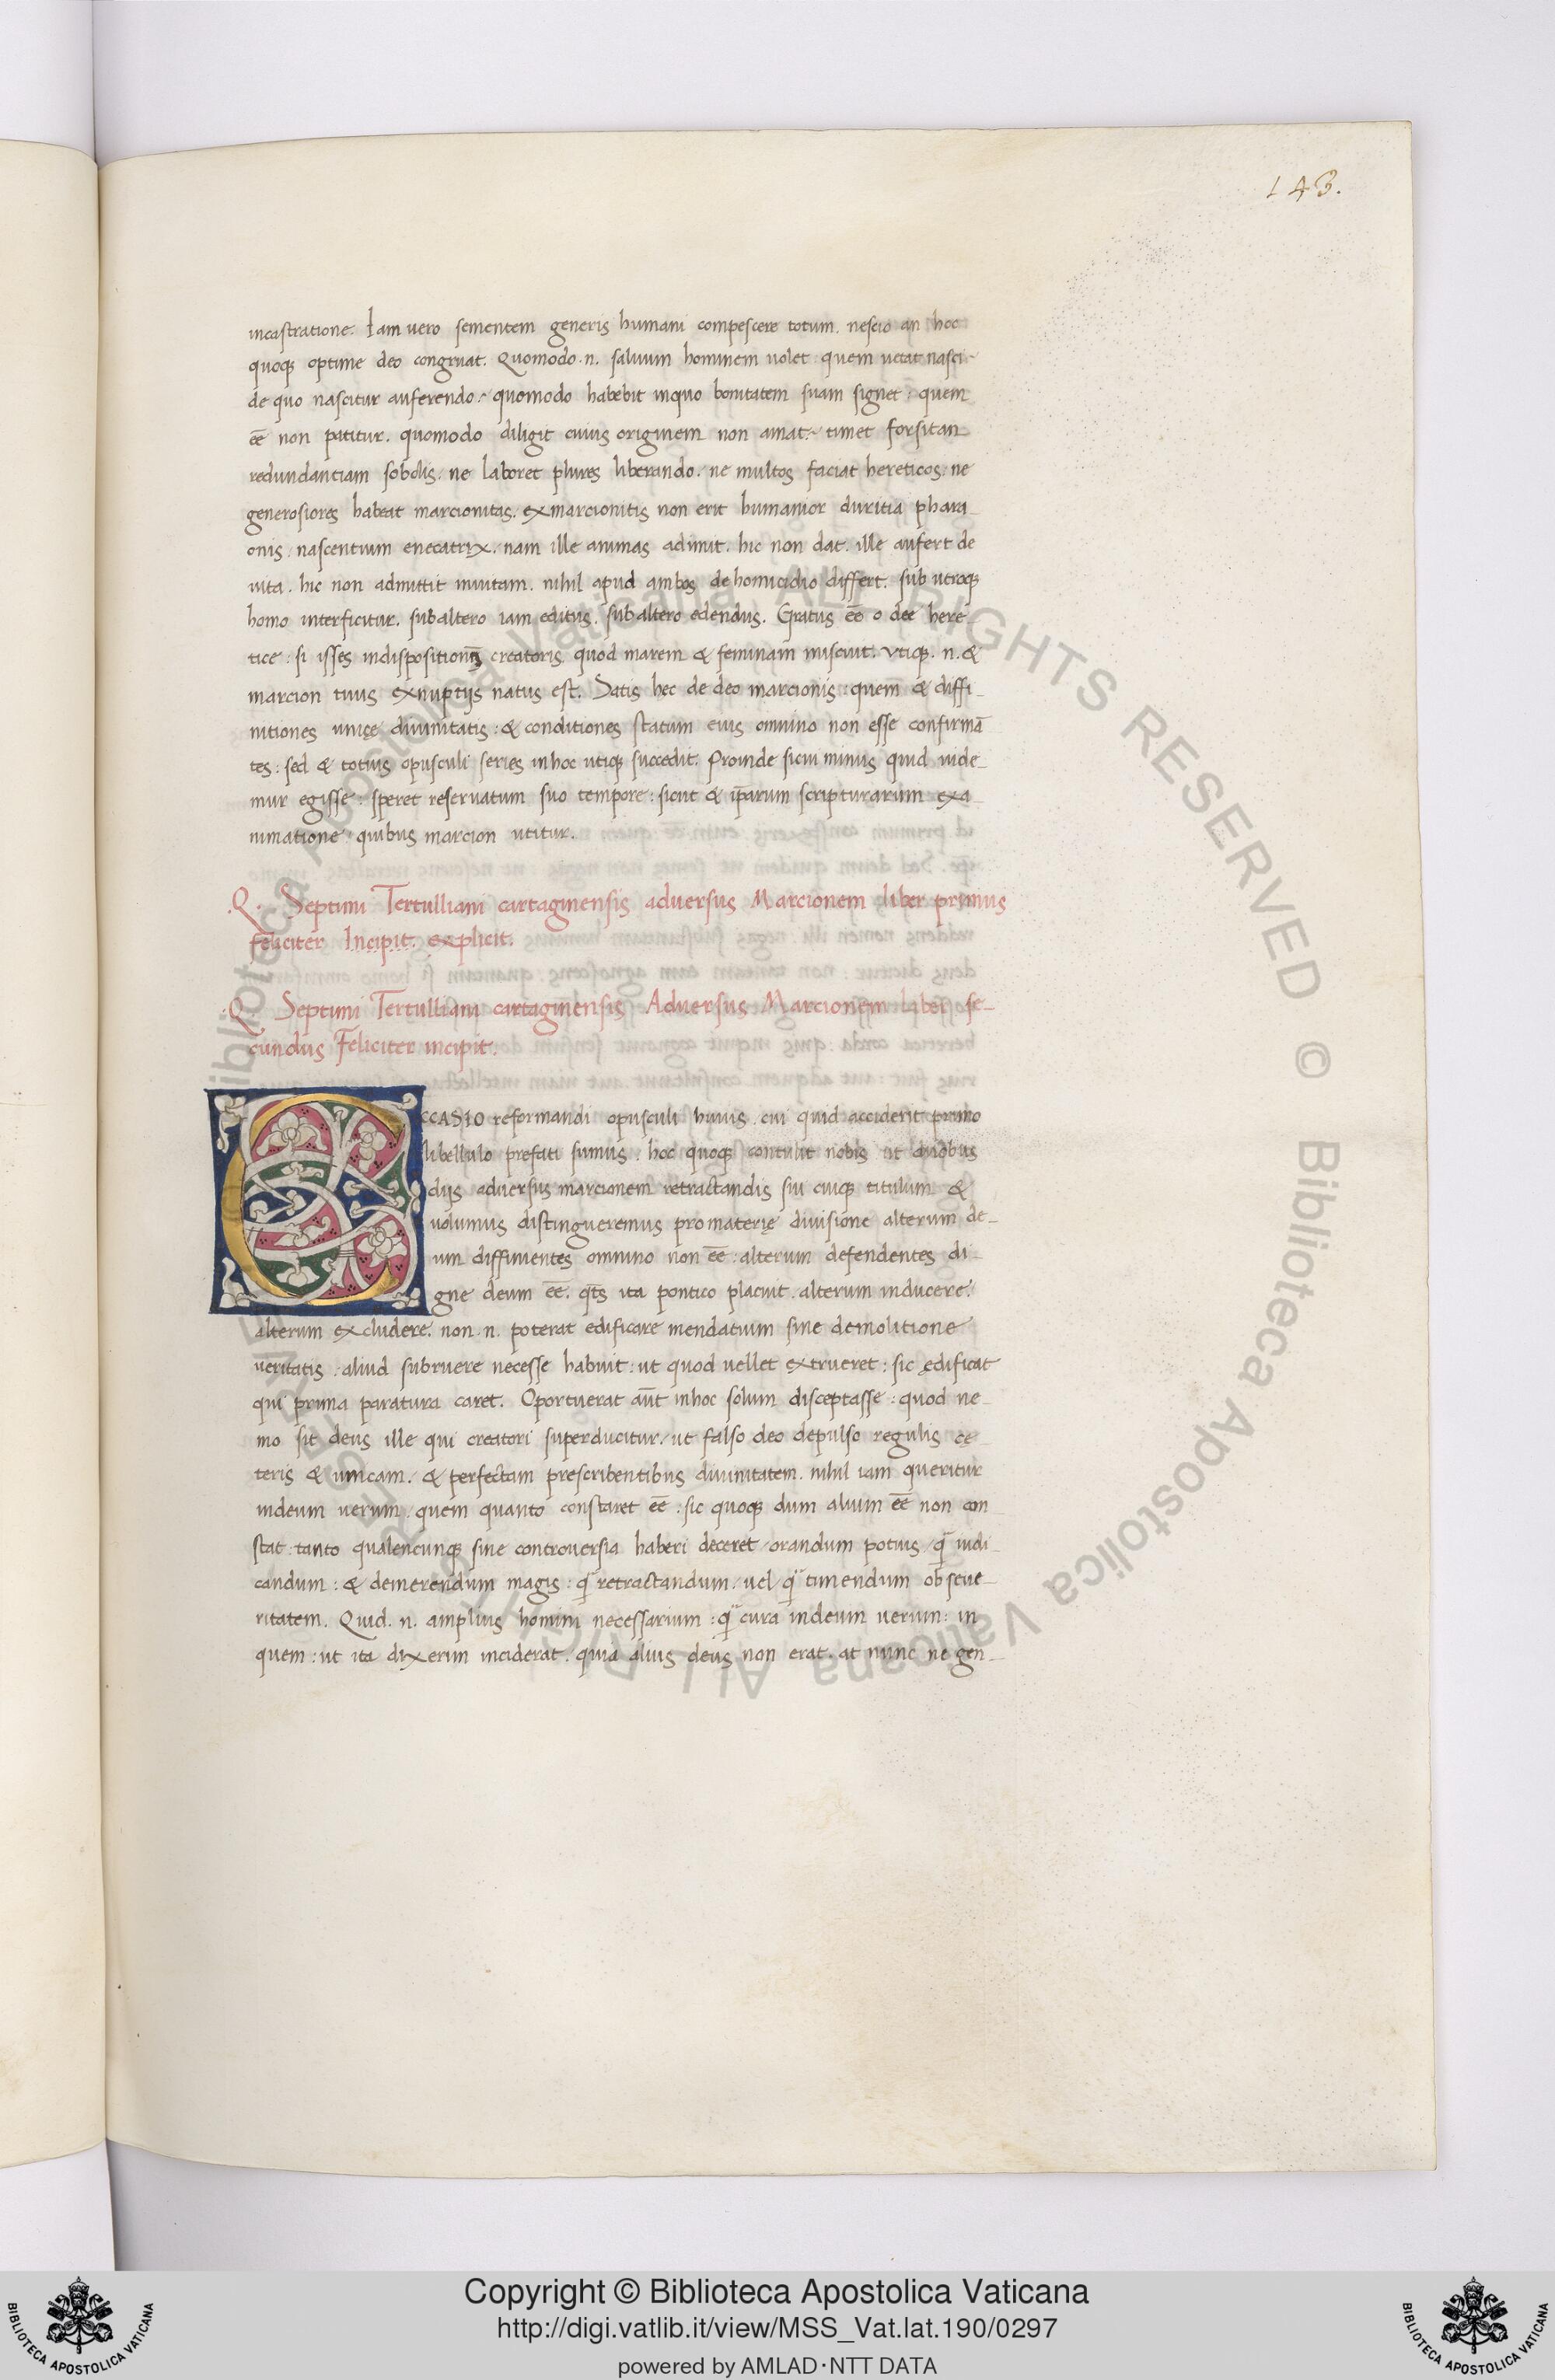 143.
incastratione. Iam vero sementem generis humani compescere totum. nescio an hoc
quoqꝫ optime deo congruat. Quomodo .n. saluum hominem uolet quem uetat nasci
de quo nascitur auferendo. quomodo habebit inquo bonitatem suam signet: quem
eē non patitur. quomodo diligit cuius originem non amat. timet forsitan
redundantiam sobolis. ne laboret plures liberando. ne multos faciat hereticos. ne
generosiores habeat marcionitas. exmarcionitis non erit humanior duritia phara-
onis. nascentium enecatrix. nam ille animas adimit. hic non dat. ille aufert de
uita. hic non admittit inuitam. nihil apud ambos de homicidio differt. sub utroqꝫ
homo interficitur. subaltero iam editus. subaltero edendus. Gratus eē o dee here-
tice: si isses indispositionꝫ creatoris quod marem & feminam miscuit. utiqꝫ .n. &
marcion tuus exnuptijs natus est. Satis hec de deo marcionis: quem & diffi-
nitiones unicę diuinitatis: & conditiones statum eius omnino non esse confirmā
tes: sed & totius opusculi series inhoc utiqꝫ succedit. Proinde sicui minus quid uide-
mur egisse: speret reseruatum suo tempore: sicut & ip̄arum scripturarum exa-
minatione quibus marcion utitur.
.Q. Septimi Tertulliani cartaginensis adversus Marcionem liber primus
feliciter Incipit. explicit.
.Q. Septimi Tertulliani cartaginensis Adversus Marcionem Liber se-
cundus Feliciter incipit.
OCCASIO reformandi opusculi huius. cui quid acciderit primo
libellulo prefati sumus. hoc quoqꝫ contulit nobis ut duobus
dijs adversus marcionem retractandis sui cuiqꝫ titulum &
uolumus distingueremus pro materię diuisione alterum de-
um diffinientes omnino non eē: alterum defendentes di-
gne deum eē. qt̄s ita pontico placuit. alterum inducere.
alterum excludere. non .n. poterat edificare mendatium sine demolitione
veritatis. aliud subruere necesse habuit: ut quod uellet extrueret: sic ędificat
qui prima paratura caret. Oportuerat aūt inhoc solum disceptasse: quod ne-
mo sit deus ille qui creatori superducitur. ut falso deo depulso regulis ce-
teris & unicam. & perfectam prescribentibus diuinitatem. nihil iam queritur
indeum uerum. quem quanto constaret eē: sic quoqꝫ dum alium eē non con-
stat tanto qualencunqꝫ sine controversia haberi deceret. orandum potius q̄ iudi-
candum: & demerendum magis: q̄ retractandum. uel q̄ timendum ob seue-
ritatem. Quid .n. amplius homini necessarium: q̄ cura indeum uerum: in
quem: ut ita dixerim inciderat. quia alius deus non erat. at nunc ne gen-
© Biblioteca Apostolica Vaticana ALL RIGHTS RESERVED © Biblioteca Apostolica Vaticana ALL RIGHTS RESERVED
Copyright © Biblioteca Apostolica Vaticana
http://digi.vatlib.it/view/MSS_Vat.lat.190/0297
powered by AMLAD·NTT DATA
BIBLIOTECA APOSTOLICA VATICANA
BIBLIOTECA APOSTOLICA VATICANA